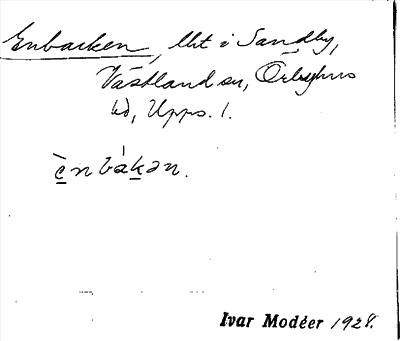 Enbacken, lht i Sandby,
Västland sn, Örbyhus
hd, Upps. l.
ènbákən.
Ivar Modéer 1928.